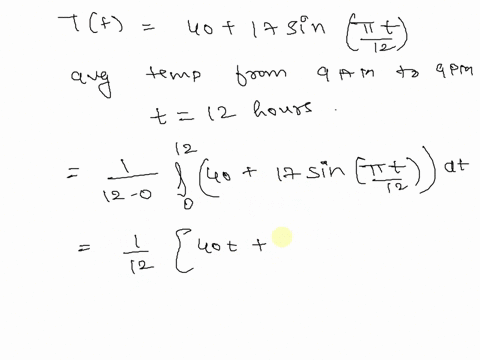 T(t) = 40 + 17 sin (πt/12)
avg temp from 9 AM to 9 PM
t = 12 hours.
= 1/(12-0) ∫₀¹² (40 + 17 sin (πt/12)) dt
= 1/12 [40t +